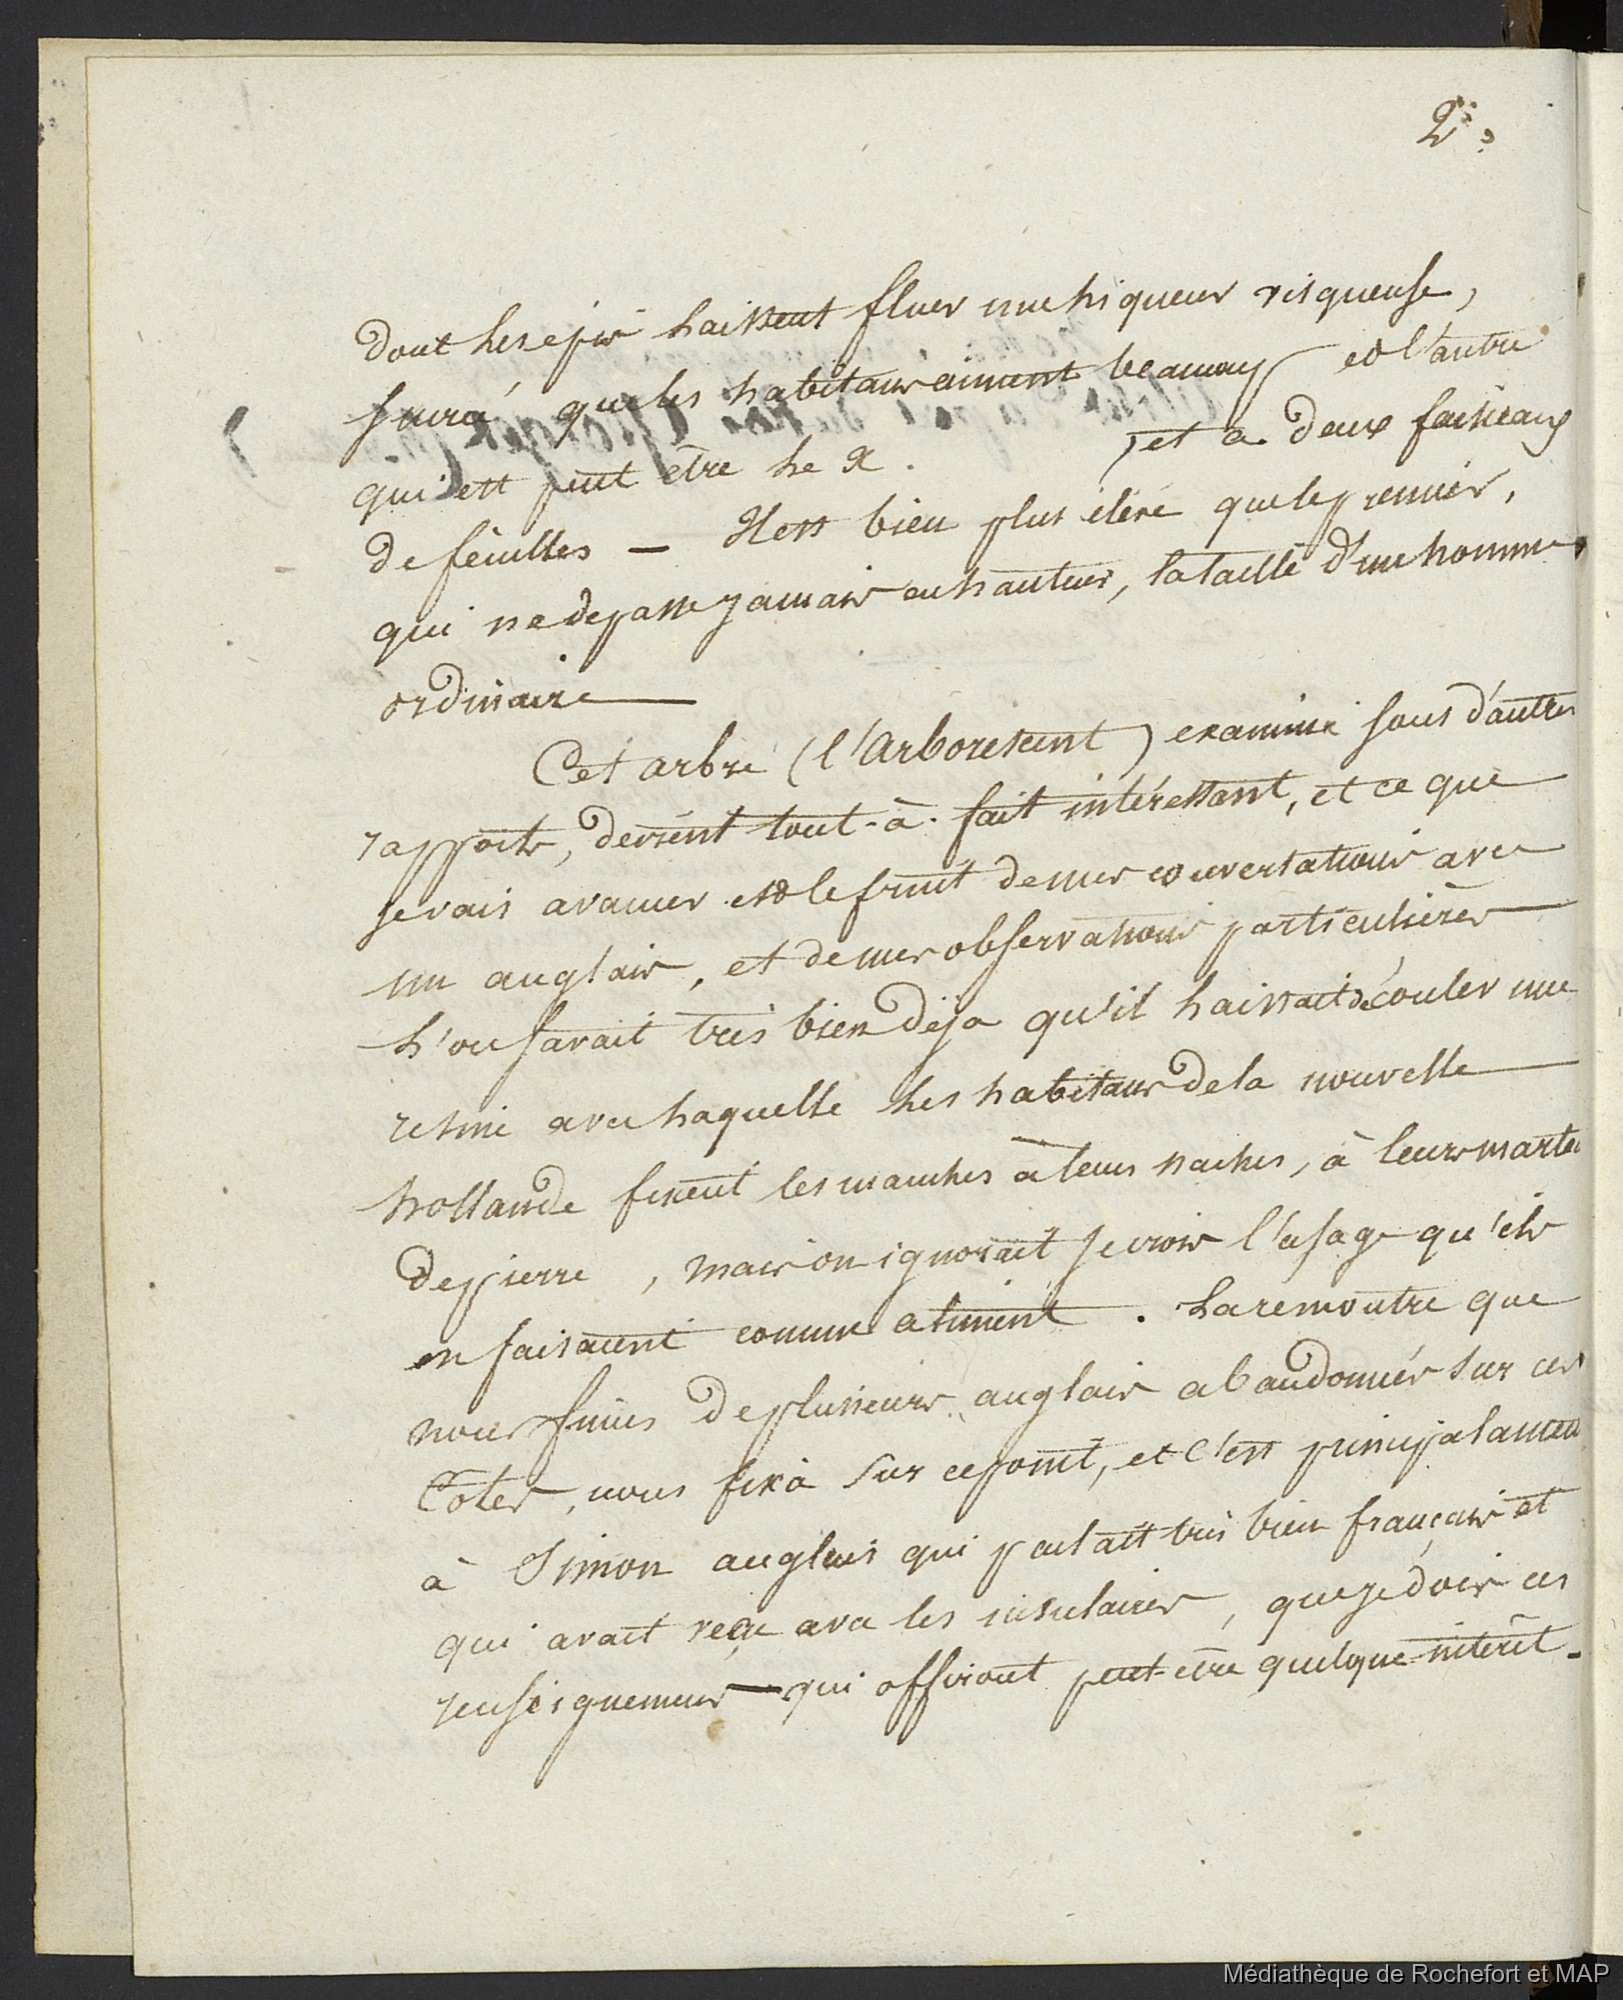 2°.
dont les epis laissent fluer une liqueur visqueuse,
sucré, que les habitans aiment beaucoup et l'autre
qui est peut être le X. jet a deux faisceaux
de feuilles — Il est bien plus élévé que le premier,
qui ne depasse jamais en hauteur, la taille d'un homme
ordinaire —
Cet arbre (l'Arborescent) examiné sous d'autres
rapports, devient tout-à-fait intéressant, et ce que
je vais avancer est le fruit de mes conversations avec
un anglais, et de mes observations particulières
l'on savait très bien déja qu'il laissait découler une
resine avec laquelle les habitans de la nouvelle
hollande fixent les manches à leurs haches, à leurs marte
de pierre, mais on ignorait je crois l'usage qu'ils
en faisaient comme aliment. La remontre que
nous fimes de plusieurs anglais abandonnés sur ces
Côtes, nous fixà sur ce point, et c'est principalament
à Simon anglais qui parlait très bien français et
qui avait veçu avec les insulaires, que je dois ces
renseignemens — qui offriront peut-être quelque intérêt.
Médiathèque de Rochefort et MAP